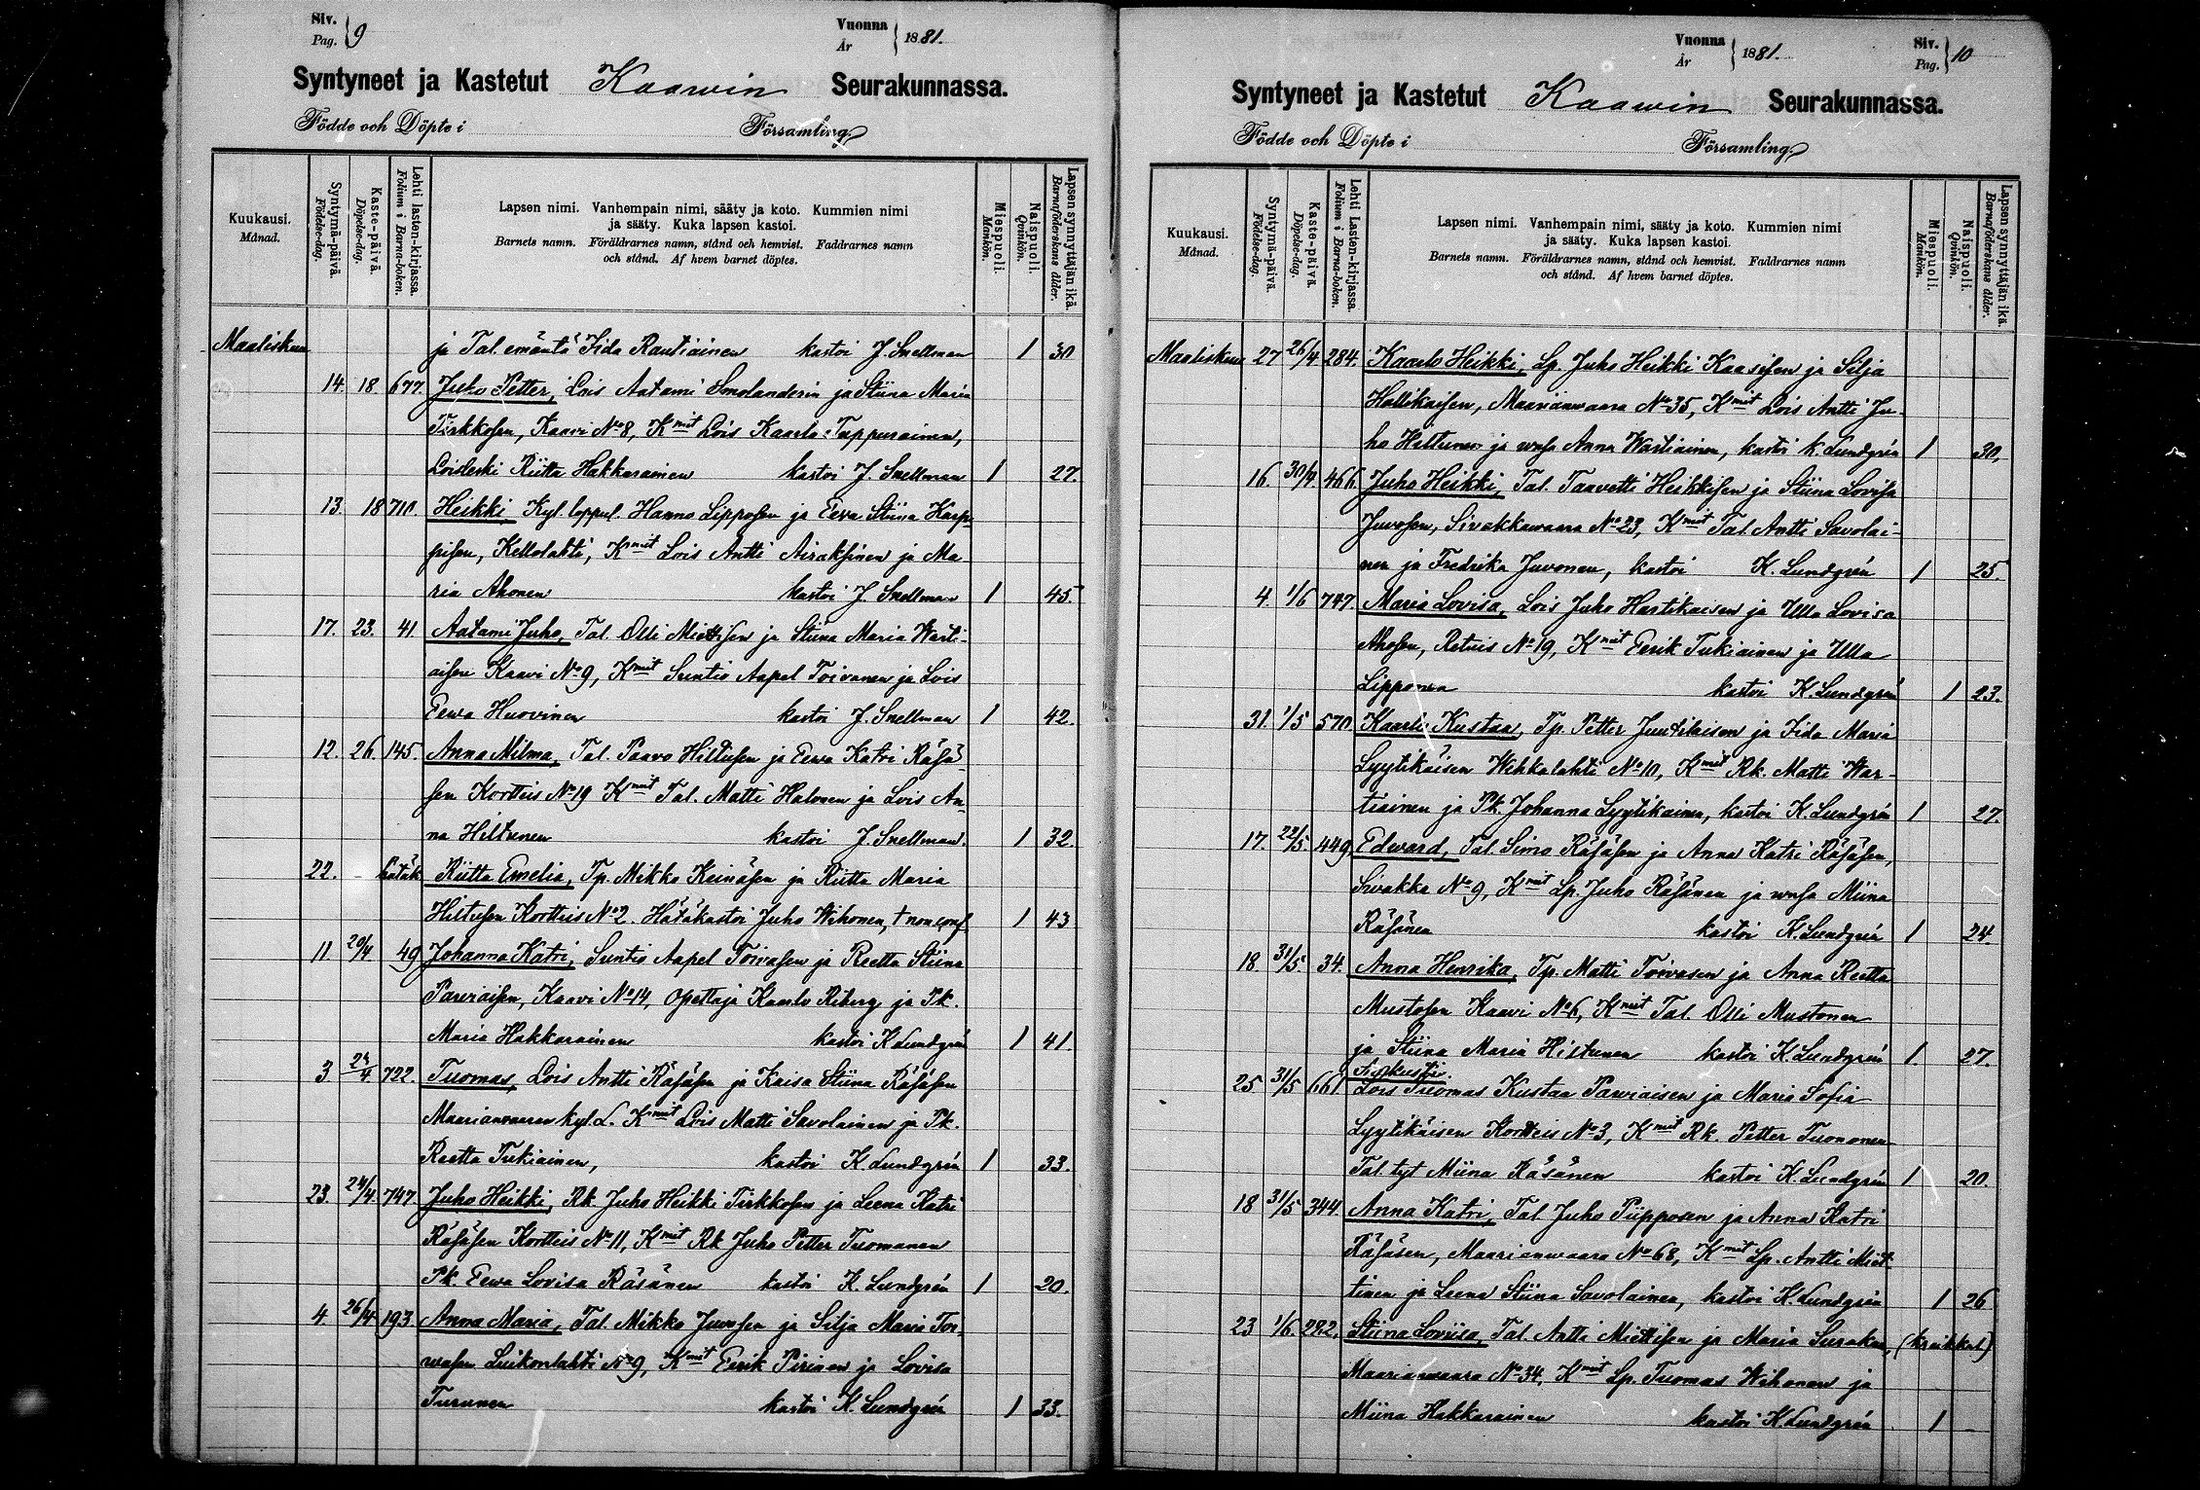 Siv. Pag. 9
Vuonna År 1881.
Syntyneet ja Kastetut Kaawin Seurakunnassa.
Födde och Döpte i Församling
Kuukausi. Månad.
Syntymä-päivä. Födelse-dag.
Kaste-päivä. Döpelse-dag.
Lehti lasten-kirjassa. Folium i Barna-boken.
Lapsen nimi. Vanhempain nimi, sääty ja koto. Kummien nimi
ja sääty. Kuka lapsen kastoi.
Barnets namn. Föräldrarnes namn, stånd och hemvist. Faddrarnes namn
och stånd. Af hvem barnet döptes.
Miespuoli. Mankön.
Naispuoli. Qvinkön.
Lapsen synnyttäjän ikä. Barnaföderskans ålder.
Maaliskuu ja Tal. emäntä Fida Rautiainen kastoi J. Snellman 1 30
14. 18 677 Juho Petter, Lois Aatami Smolanderin ja Stiina Maria
Tirkkosen, Kaavi No 8, Kmit Lois Kaarlo Tuppurainen,
Loisleski Riitta Hakkarainen kastoi J. Snellman 1 27.
13. 18 710. Heikki, Kyl. loppul. Hanno Lipposen ja Eeva Stiina Karp-
pisen, Kellolahti, Kmit Lois Antti Airaksinen ja Ma-
ria Ahonen kastoi J. Snellman 1 45.
17. 23. 41 Aatami Juho, Tal. Olli Miettisen ja Stiina Maria Warti-
aisen Kaavi No 9, Kmit Suntio Aapel Toivanen ja Lois
Eewa Huovinen kastoi J. Snellman 1 42.
12. 26. 145. Anna Milma, Tal. Paavo Hiltusen ja Eewa Katri Räsä-
sen Kortteis No 19 Kmit Tal. Matti Halonen ja Lois An-
na Hiltunen kastoi J. Snellman. 1 32.
22. hätäk Riitta Emelia, Tp. Mikko Keinäsen ja Riitta Maria
Hiltusen Kortteis No 2. Hätäkastoi Juho Wihonen, † non conf 1 43
11 20/4 49 Johanna Katri, Suntio Aapel Toivasen ja Reetta Stiina
Parviaisen, Kaavi No 14, opettaja Kaarlo Riberg ja Pk.
Maria Hakkarainen kastoi K Lundgrén 1 41.
3 24/4 722. Tuomas, Lois Antti Räsäsen ja Kaisa Stiina Räsäsen
Maarianvaaran kyl. L. Kmit Lois Matti Savolainen ja Pk.
Reetta Tukiainen, kastoi K Lundgrén 1 33.
23. 24/4. 747. Juho Heikki, Rk. Juho Heikki Tirkkosen ja Leena Katri
Räsäsen Kortteis No 11, Kmit Rk Juho Petter Tuomanen
Pk Eewa Lovisa Räsänen kastoi K. Lundgrén 1 20.
4. 26/4 193 Anna Maria, Tal. Mikko Juvosen ja Silja Maria Toi-
wasen Luikonlahti No 9, Kmit Eerik Pirinen ja Lovisa
Turunen kastoi K. Lundgrén 1 33.
Vuonna År 1881.
Siv. Pag. 10
Syntyneet ja Kastetut Kaawin Seurakunnassa.
Födde och Döpte i Församling
Kuukausi. Månad.
Syntymä-päivä. Födelse-dag.
Kaste-päivä. Döpelse-dag.
Lehti Lasten-kirjassa. Folium i Barna-boken.
Lapsen nimi. Vanhempain nimi, sääty ja koto. Kummien nimi
ja sääty. Kuka lapsen kastoi.
Barnets namn. Föräldrarnes namn, stånd och hemvist. Faddrarnes namn
och stånd. Af hvem barnet döptes.
Miespuoli. Mankön.
Naispuoli. Qvinkön.
Lapsen synnyttäjän ikä. Barnaföderskans ålder.
Maaliskuu 27 26/4 284. Kaarlo Heikki, Lp. Juho Heikki Kaasisen ja Silja
Hallikaisen, Maarianwaara No 35, Kmit Lois Antti Ju-
ho Hiltunen ja waha Anna Wartiainen, kastoi K. Lundgrén 1 30.
16. 30/4. 466. Juho Heikki, Tal. Taavetti Heikkisen ja Stiina Lovisa
Juvosen, Sivakkavaara No 23, Kmit Tal. Antti Savolai-
nen ja Fredrika Juvonen, kastoi K. Lundgrén 1 25.
4. 1/6 747 Maria Lovisa, Lois Juho Hartikaisen ja Ulla Lovisa
Ahosen, Retuis No 19, Kmit Eerik Tukiainen ja Ulla
Lipponen kastoi K. Lundgrén 1 23.
31. 1/5 570 Kaarlo Kustaa, Tp. Petter Juutilaisen ja Fida Maria
Lyytikäisen Wehkalahti No 10, Kmit Rk. Matti War-
tiainen ja Pk. Johanna Lyytikäinen, kastoi K. Lundgrén 1 27
17. 22/5 449. Edward, Tal. Simo Räsäsen ja Anna Katri Räsäsen,
Sivakka No 9, Kmit Lp. Juho Räsänen ja waha Miina
Räsänen kastoi K. Lundgrén 1 24
18 31/5. 34. Anna Henrika, Tp. Matti Toivasen ja Anna Reetta
Mustosen Kaavi No 6, Kmit Tal. Olli Mustonen
ja Stiina Maria Hiltunen kastoi K Lundgrén 1. 27.
25. 31/5 661 Lois Tuomas Kustaa Parviaisen ja Maria Sofia
Lyytikäisen Kortteis No 3, Kmit Rk. Petter Tuononen
Tal. tyt Miina Räsänen kastoi K. Lundgrén 1 20.
18 31/5 344 Anna Katri, Tal Juho Piipposen ja Anna Katri
Räsäsen, Maarianwaara No 68, Kmit Lp. Antti Miet-
tinen ja Leena Stiina Savolainen, kastoi K. Lundgrén 1 26
23 1/6. 292. Stiina Loviisa, Tal. Antti Miettisen ja Maria Surakan,
Maarianwaara No 34, Kmit Lp. Tuomas Wihonen ja
Miina Hakkarainen kastoi K. Lundgrén 1 -